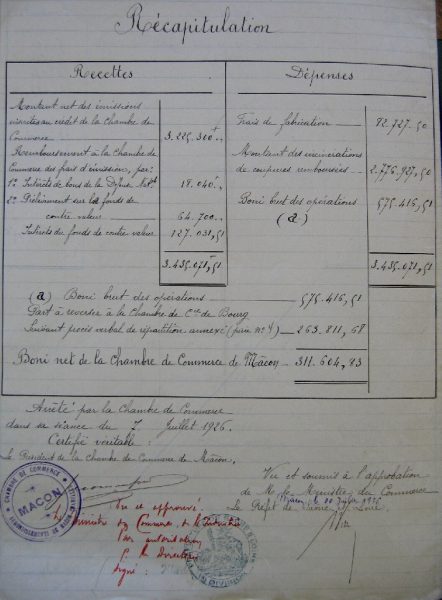 Récapitulation
Recettes
Montant net des émissions
inscrites au crédit de la Chambre de
Commerce 3.225.300
Remboursement à la Chambre de
Commerce des frais d'émission, par:
1º Intérêts de bons de la Défse Natle 18.040
2º Prélèvement sur le fonds de
contre valeur 64.700
Intérêts du fonds de contre valeur 127.031,51
3.435.071,51
Dépenses
Frais de fabrication 82.727.50
Montant des incinérations
de coupures remboursées 2.776.927,50
Boni brut des opérations 575.416,51
(a)
3.435.071,51
(a) Boni brut des opérations 575.416,51
Part à reverser à la Chambre de Cce de Bourg
suivant procès verbal de répartition annexé (pièce nº 4) 263.811,68
Boni net de la Chambre de Commerce de Mâcon 311.604,83
Arrêté par la Chambre de Commerce
dans sa séance du 7 Juillet 1926.
Certifié véritable:
Le Président de la Chambre de Commerce de Mâcon,
CHAMBRE DE COMMERCE
MACON
Vu et approuvé
Le Ministre du Commerce, de l'Industrie
Par autorisation
Le Directeur
Signé:
Vu et soumis à l'approbation
de M. le Ministre du Commerce
Mâcon, le Juillet 1926
Le Préfet de Saône et Loire